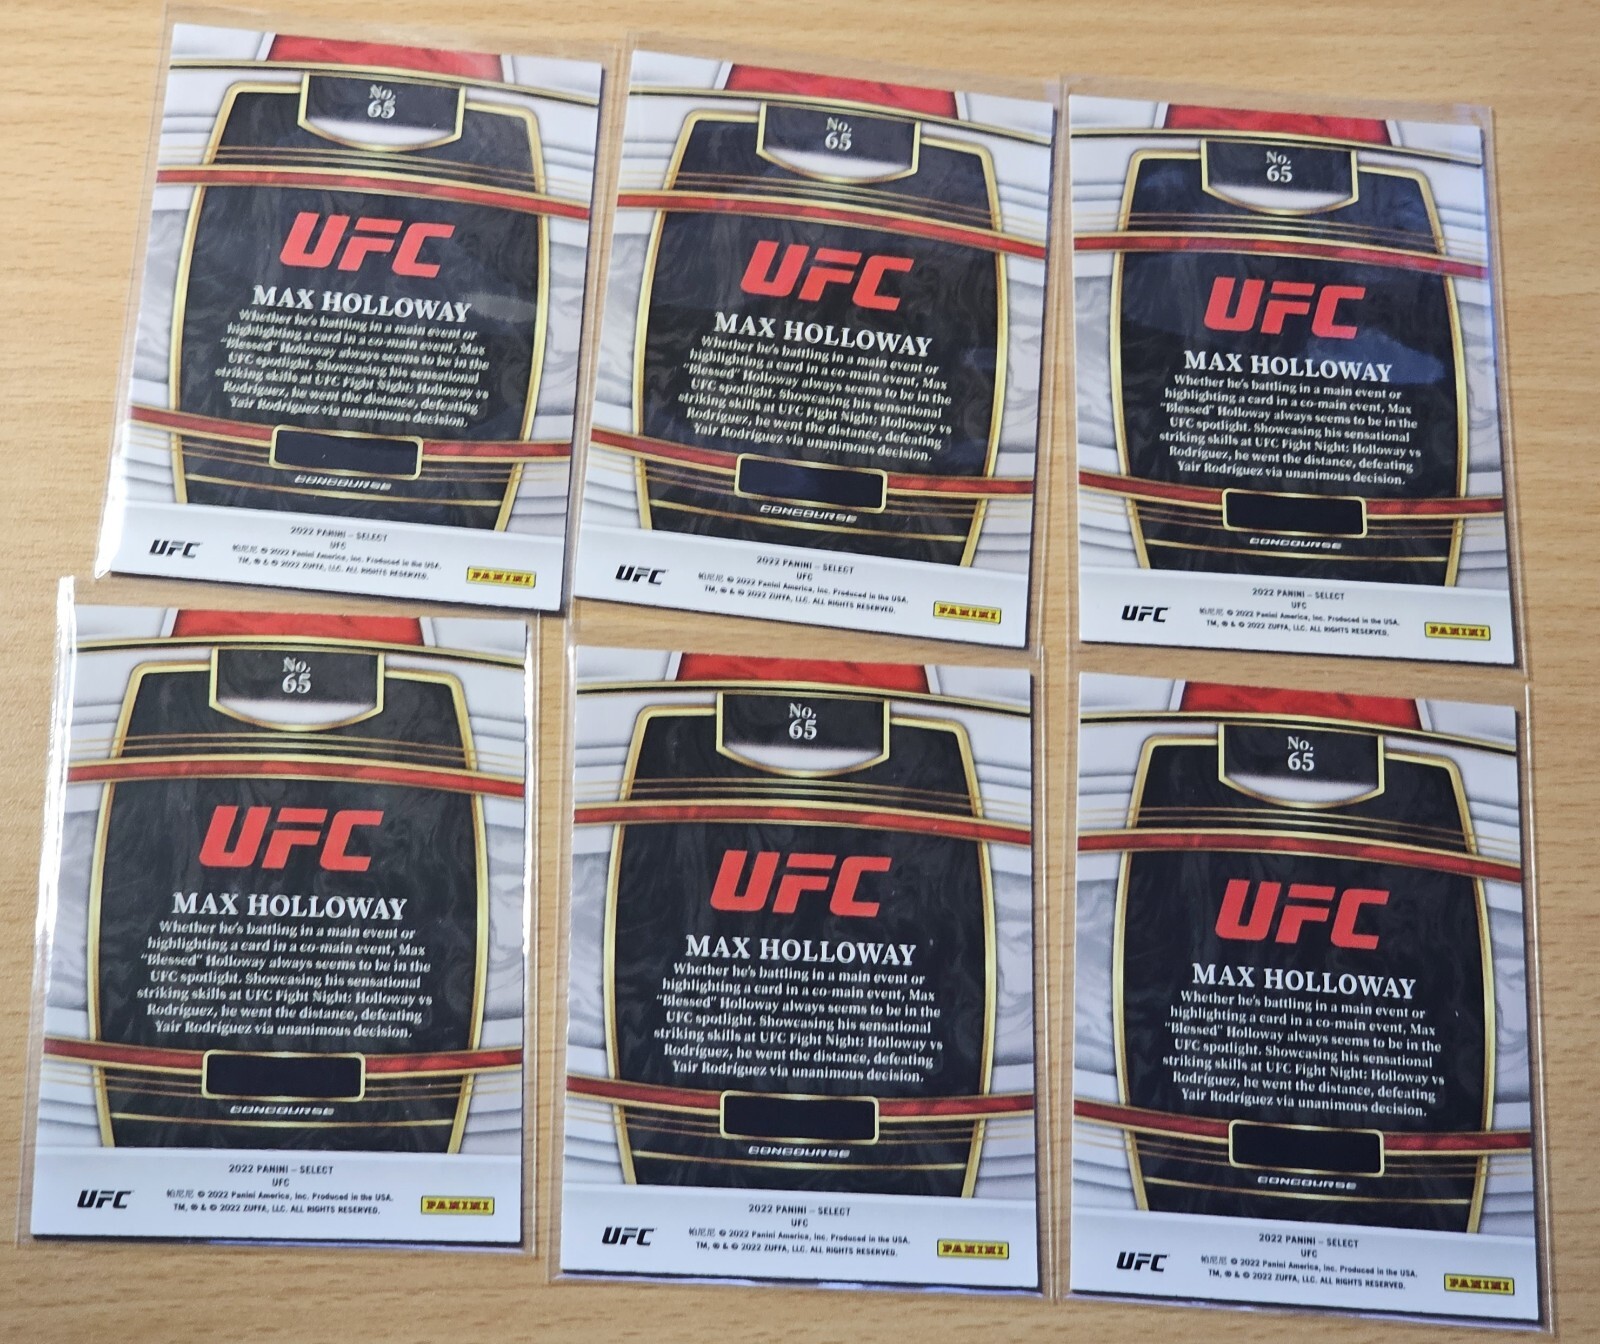 No.
65
UFC
MAX HOLLOWAY
Whether he's battling in a main event or
highlighting a card in a co-main event, Max
"Blessed" Holloway always seems to be in the
UFC spotlight. Showcasing his sensational
striking skills at UFC Fight Night: Holloway vs
Rodríguez, he went the distance, defeating
Yair Rodríguez via unanimous decision.
CONCOURSE
2022 PANINI – SELECT
UFC
UFC
帕尼尼 © 2022 Panini America, Inc. Produced in the USA.
TM, ® & © 2022 ZUFFA, LLC. ALL RIGHTS RESERVED.
PANINI
No.
65
UFC
MAX HOLLOWAY
Whether he's battling in a main event or
highlighting a card in a co-main event, Max
"Blessed" Holloway always seems to be in the
UFC spotlight. Showcasing his sensational
striking skills at UFC Fight Night: Holloway vs
Rodríguez, he went the distance, defeating
Yair Rodríguez via unanimous decision.
CONCOURSE
2022 PANINI – SELECT
UFC
UFC
帕尼尼 © 2022 Panini America, Inc. Produced in the USA.
TM, ® & © 2022 ZUFFA, LLC. ALL RIGHTS RESERVED.
PANINI
No.
65
UFC
MAX HOLLOWAY
Whether he's battling in a main event or
highlighting a card in a co-main event, Max
"Blessed" Holloway always seems to be in the
UFC spotlight. Showcasing his sensational
striking skills at UFC Fight Night: Holloway vs
Rodríguez, he went the distance, defeating
Yair Rodríguez via unanimous decision.
CONCOURSE
2022 PANINI – SELECT
UFC
UFC
帕尼尼 © 2022 Panini America, Inc. Produced in the USA.
TM, ® & © 2022 ZUFFA, LLC. ALL RIGHTS RESERVED.
PANINI
No.
65
UFC
MAX HOLLOWAY
Whether he's battling in a main event or
highlighting a card in a co-main event, Max
"Blessed" Holloway always seems to be in the
UFC spotlight. Showcasing his sensational
striking skills at UFC Fight Night: Holloway vs
Rodríguez, he went the distance, defeating
Yair Rodríguez via unanimous decision.
CONCOURSE
2022 PANINI – SELECT
UFC
UFC
帕尼尼 © 2022 Panini America, Inc. Produced in the USA.
TM, ® & © 2022 ZUFFA, LLC. ALL RIGHTS RESERVED.
PANINI
No.
65
UFC
MAX HOLLOWAY
Whether he's battling in a main event or
highlighting a card in a co-main event, Max
"Blessed" Holloway always seems to be in the
UFC spotlight. Showcasing his sensational
striking skills at UFC Fight Night: Holloway vs
Rodríguez, he went the distance, defeating
Yair Rodríguez via unanimous decision.
CONCOURSE
2022 PANINI – SELECT
UFC
UFC
帕尼尼 © 2022 Panini America, Inc. Produced in the USA.
TM, ® & © 2022 ZUFFA, LLC. ALL RIGHTS RESERVED.
PANINI
No.
65
UFC
MAX HOLLOWAY
Whether he's battling in a main event or
highlighting a card in a co-main event, Max
"Blessed" Holloway always seems to be in the
UFC spotlight. Showcasing his sensational
striking skills at UFC Fight Night: Holloway vs
Rodríguez, he went the distance, defeating
Yair Rodríguez via unanimous decision.
CONCOURSE
2022 PANINI – SELECT
UFC
UFC
帕尼尼 © 2022 Panini America, Inc. Produced in the USA.
TM, ® & © 2022 ZUFFA, LLC. ALL RIGHTS RESERVED.
PANINI